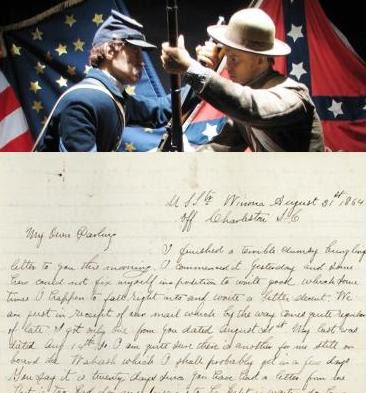 U S Str Winona August 31st 1864
Off Charleston S.C
My Own Darling
I finished a terrible clumsy bungling
letter to you this morning. I commenced it Yesterday and some
how could not fix myself in position to write good, which some
times I happen to fall right into and write a letter decent. We
are just in receipt of our mail which by the way comes quite regular
of late I got only one from you dated August 21st My last was
dated Aug 14th So I am quite sure there is another for me still on
board the Wabash which I shall probably get in a few days
You Say it is twenty days since you have had a letter from me